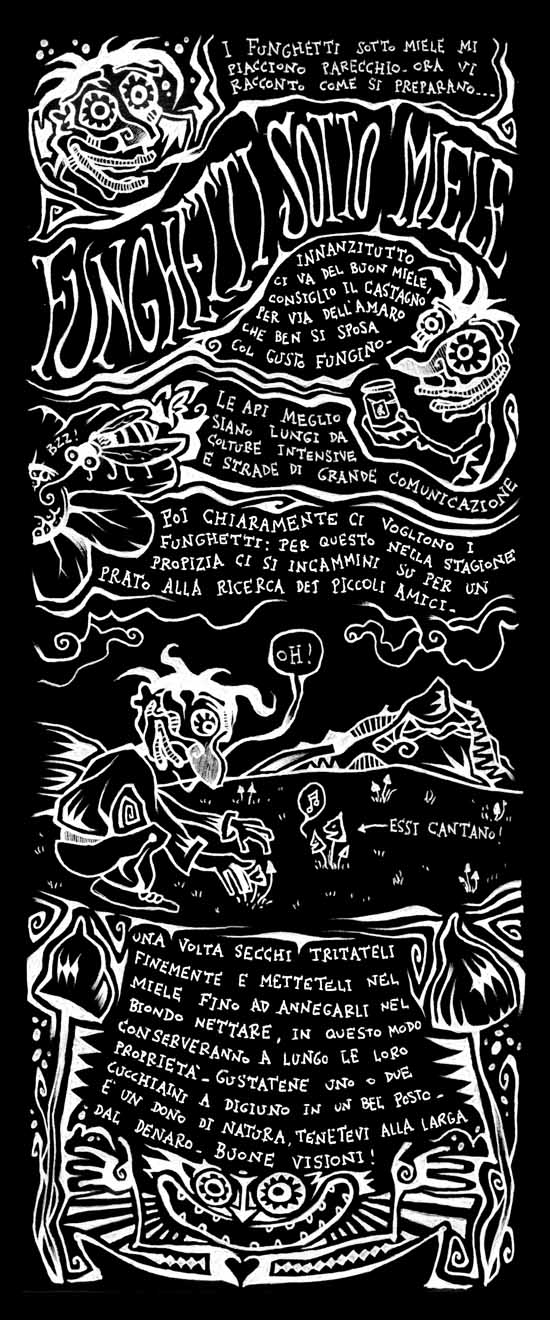 I FUNGHETTI SOTTO MIELE MI
PIACCIONO PARECCHIO. ORA VI
RACCONTO COME SI PREPARANO...
FUNGHETTI SOTTO MIELE
INNANZITUTTO
CI VA DEL BUON MIELE,
CONSIGLIO IL CASTAGNO
PER VIA DELL'AMARO
CHE BEN SI SPOSA
COL GUSTO FUNGINO-
BZZ!
LE API MEGLIO
SIANO LUNGI DA
COLTURE INTENSIVE
E STRADE DI GRANDE COMUNICAZIONE
POI CHIARAMENTE CI VOGLIONO I
FUNGHETTI: PER QUESTO NELLA STAGIONE
PROPIZIA CI SI INCAMMINI SU PER UN
PRATO ALLA RICERCA DEI PICCOLI AMICI-
OH!
ESSI CANTANO!
UNA VOLTA SECCHI TRITATELI
FINEMENTE E METTETELI NEL
MIELE FINO AD ANNEGARLI NEL
BIONDO NETTARE, IN QUESTO MODO
CONSERVERANNO A LUNGO LE LORO
PROPRIETA'- GUSTATENE UNO O DUE
CUCCHIAINI A DIGIUNO IN UN BEL POSTO-
E' UN DONO DI NATURA, TENETEVI ALLA LARGA
DAL DENARO- BUONE VISIONI!